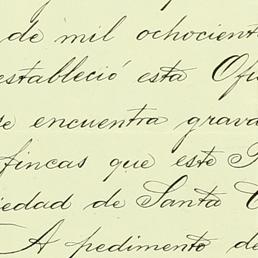 de mil ochocient
estableció esta Ofi
se encuentra grava
fincas que este P
iedad de Santa C
A pedimento de